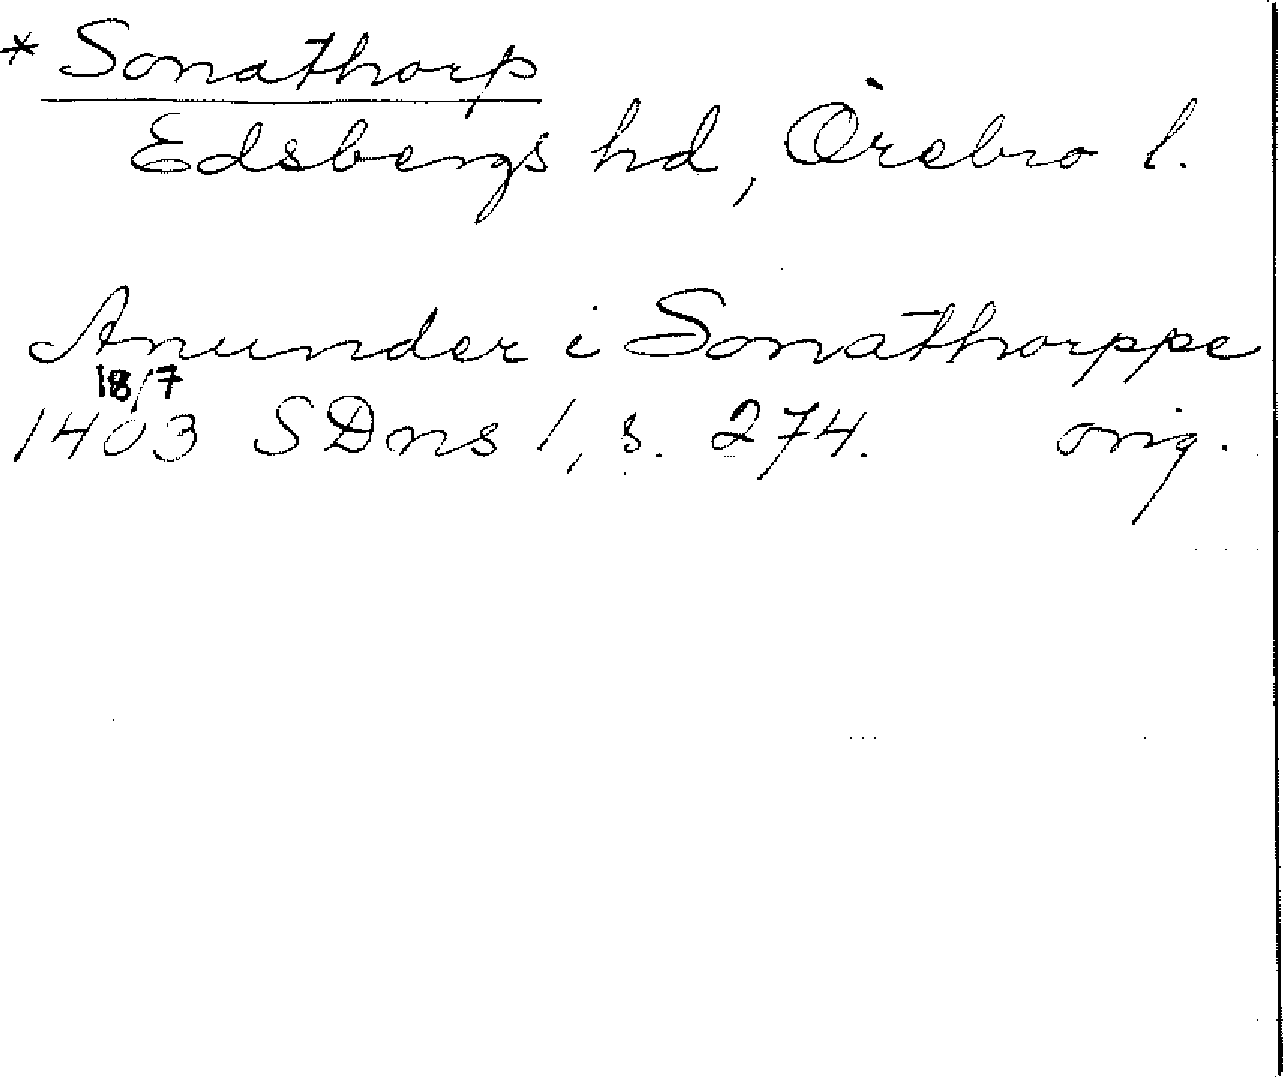 * Sonathorp
Edsbergs hd, Örebro l.
Anunder i Sonathorppe
18/7
1403 SDns 1, s. 274. orig.